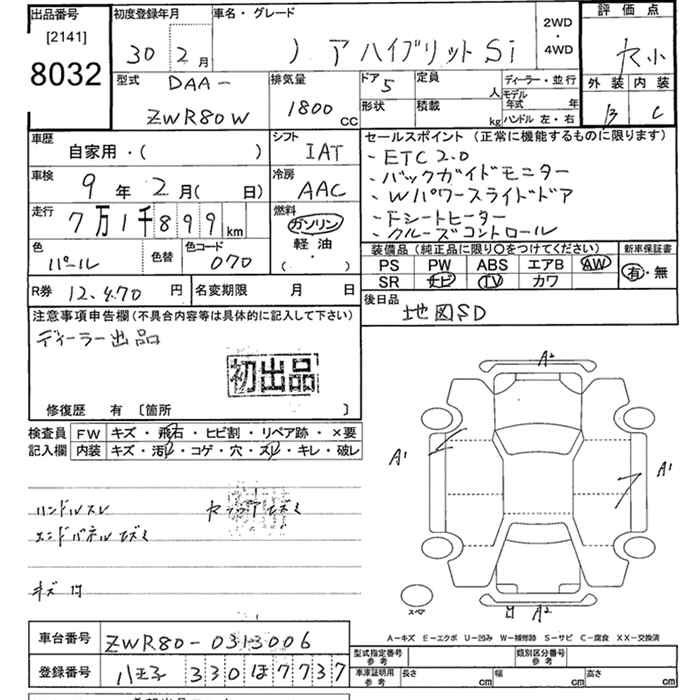 出品番号
[2141]
8032
初度登録年月
30 2月
車名・グレード
ノア ハイブリット Si
2WD
・
4WD
評価点
外装 内装
B C
型式
DAA-
ZWR80W
排気量
1800 CC
ドア 5
定員 人
形状
積載 kg
ディーラー・並行
モデル年式 年
ハンドル 左・右
車歴
自家用・( )
シフト
IAT
車検
9年 2月( 日)
冷房
AAC
走行
7万1千899km
燃料
ガソリン
軽油
( ・ )
色
パール
色替
色コード
070
R券 12,470円
名変期限 月 日
セールスポイント (正常に機能するものに限ります)
・ETC 2.0
・バックガイドモニター
・Wパワースライドドア
・Fシートヒーター
・クルーズコントロール
装備品(純正品に限り○をつけてください)
PS PW ABS エアB AW
SR ナビ TV カワ
新車保証書
有・無
後日品
地図SD
注意事項申告欄(不具合内容等は具体的に記入して下さい)
ディーラー出品
初出品
修復歴 有 [箇所 ]
検査員
記入欄
FW キズ・飛石・ヒビ割・リペア跡・×要
内装 キズ・汚レ・コゲ・穴・スレ・キレ・破レ
ハンドルスレ
エンドパネルヒズミ
キズ凹
A2
A1
A1
凹 A2
スペア
A-キズ E-エクボ U-凹み W-補修跡 S-サビ C-腐食 XX-交換済
車台番号
ZWR80-0313006
登録番号
八王子 330 ほ 7737
型式指定番号
参考
類別区分番号
参考
車庫証明用
参考
長さ cm
幅 cm
高さ cm